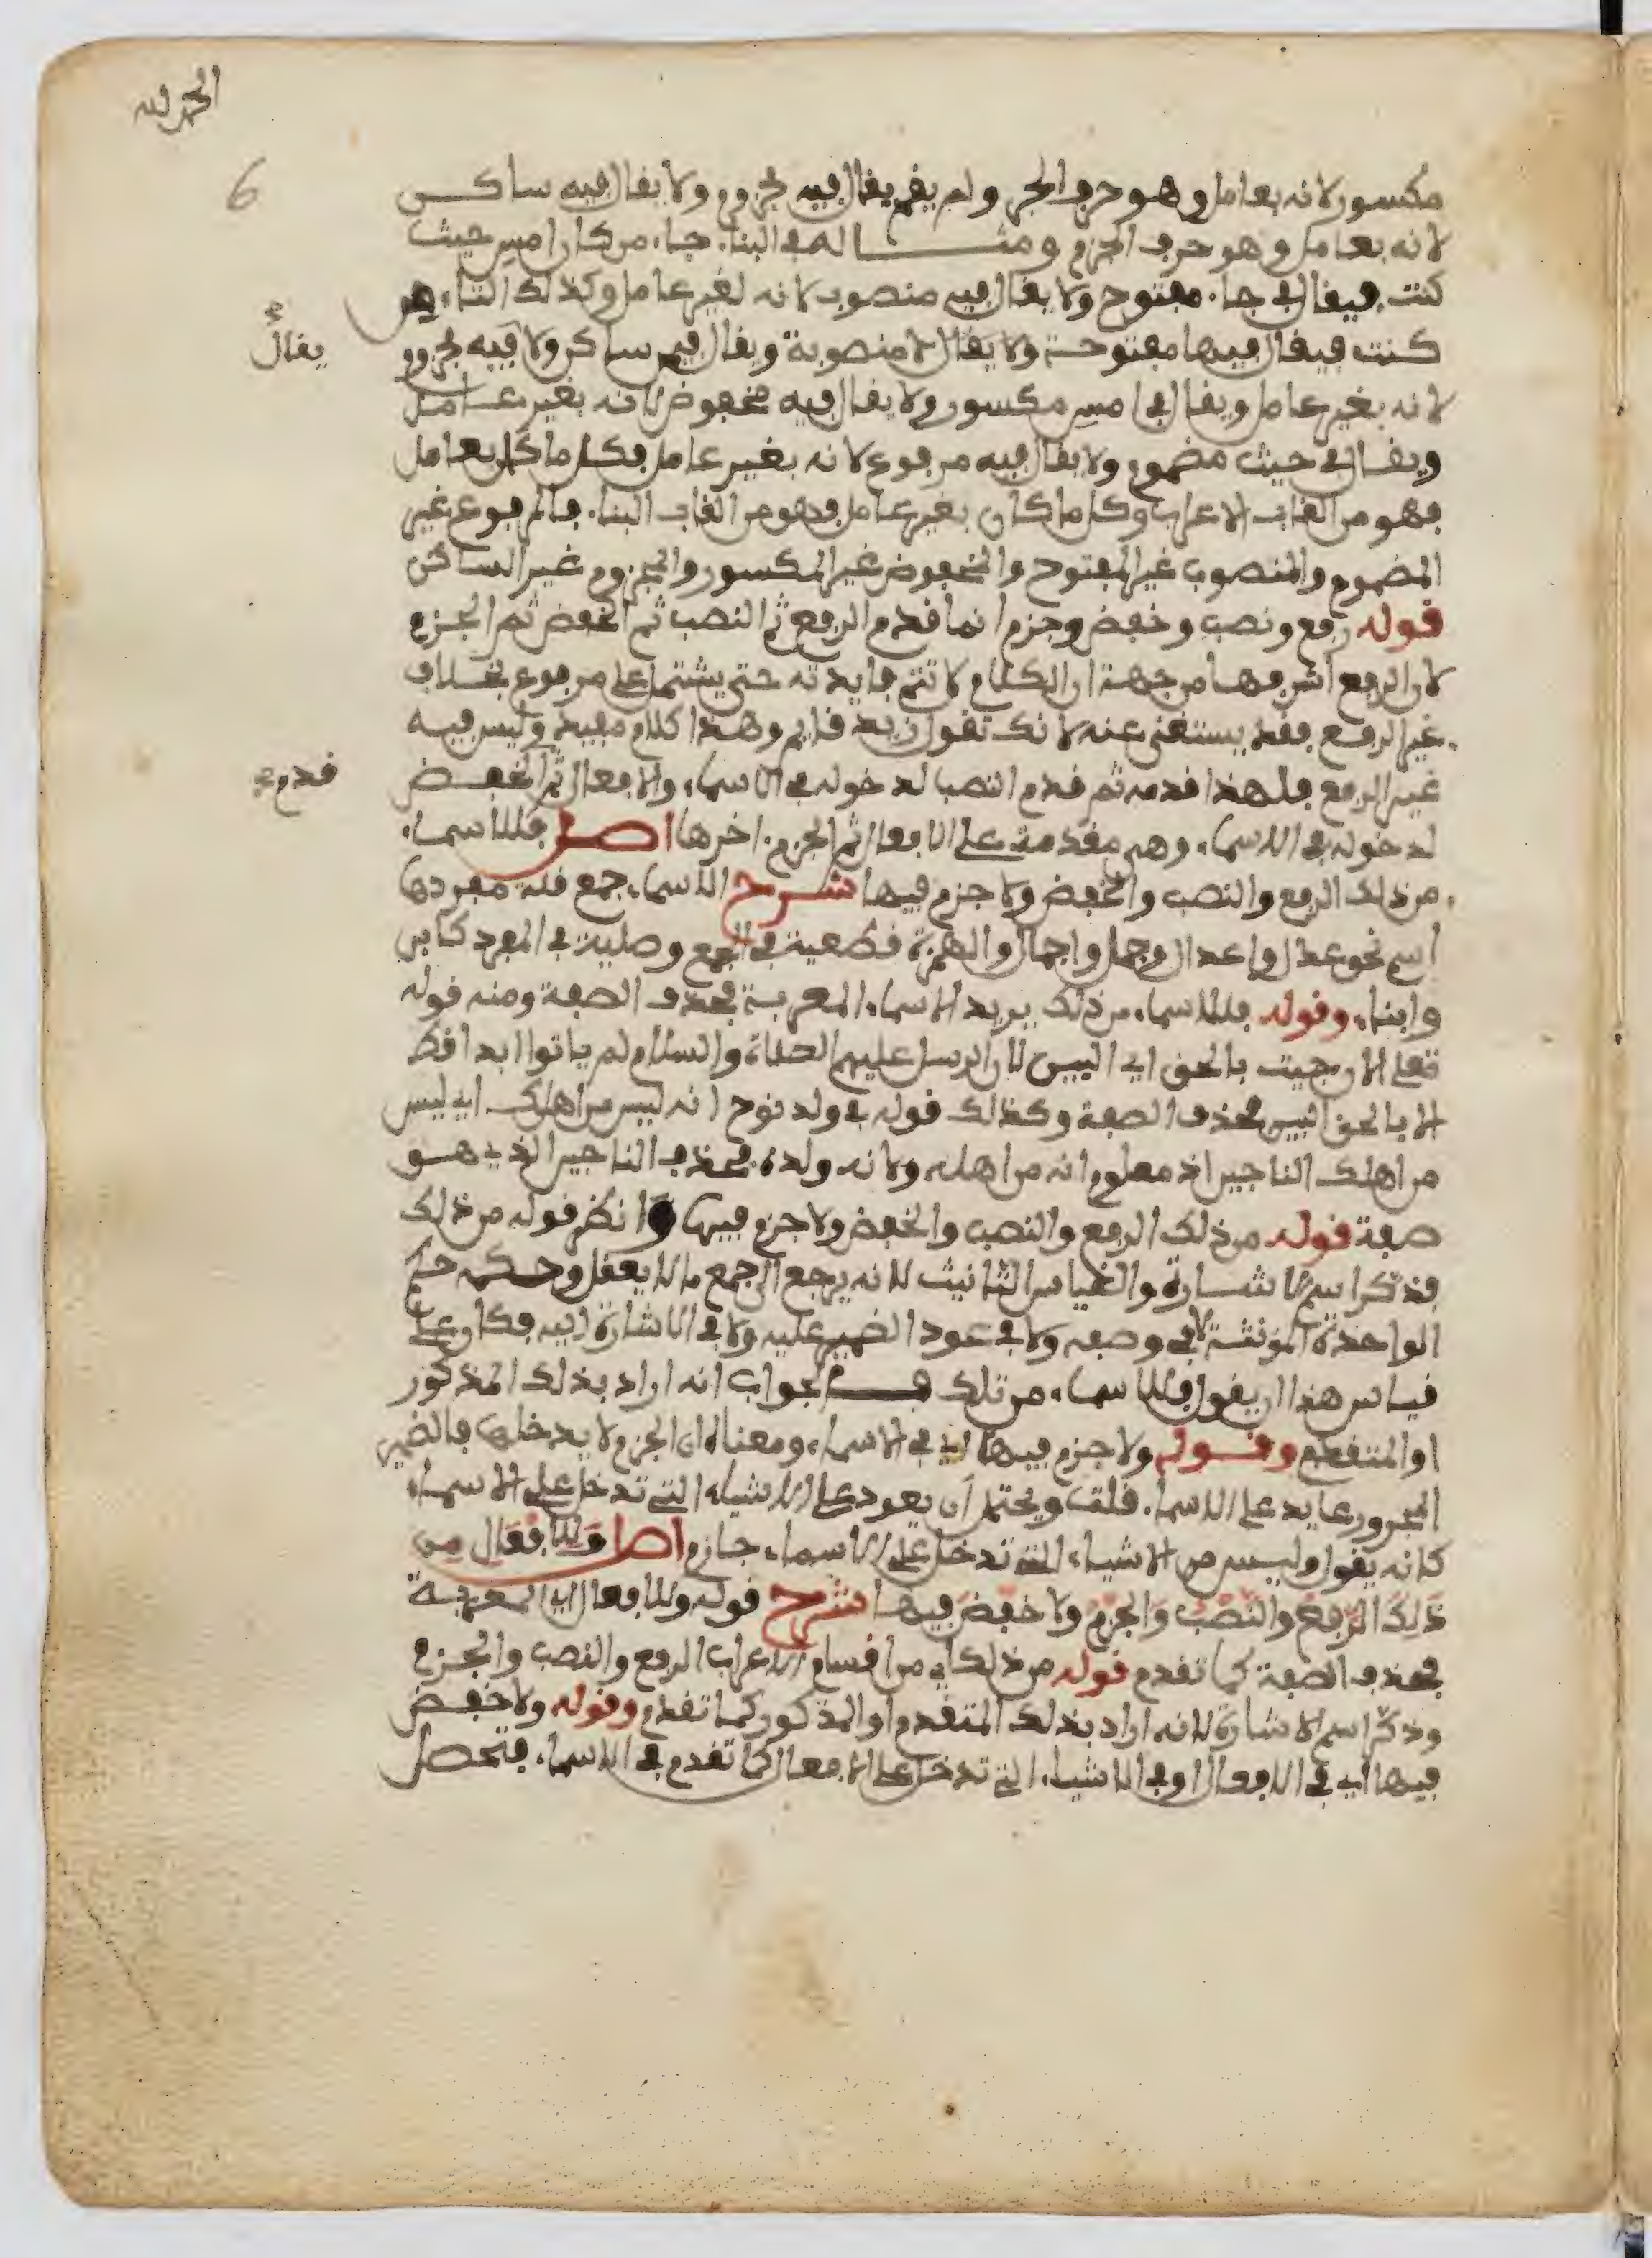 الحمد لله
6
مكسور لانه بعامل وهو حرف الجر ولم يقم يقال فيه مجزوم ولا يقال فيه ساكن
لانه بعامل وهو حرف الجزم ومثاله في البناء جاء من كان امس حيث
كنت فيقال في جاء مفتوح ولا يقال فيه منصوب لانه لغير عامل وكذلك التاء من
كنت فيقال فيها مفتوحة ولا يقال لا منصوبة ويقال في من ساكن ولا فيه مجزوم
يقال
لانه بغير عامل ويقال في امس مكسور ولا يقال فيه مخفوض لانه بغير عامل
ويقال في حيث مضموم ولا يقال فيه مرفوع لانه بغير عامل فكل ما كان بعامل
فهو من القاب الاعراب وكل ما كان بغير عامل فهو من القاب البناء فالمرفوع غير
المضموم والمنصوب غير المفتوح والمخفوض غير المكسور والمجزوم غير الساكن
قوله رفع ونصب وخفض وجزم انما قدم الرفع ثم النصب ثم الخفض ثم الجزم
لان الرفع اشرفها من جهة ان الكلام لا تتم فايدته حتى يشتمل على مرفوع بخلاف
غير الرفع فقد يستغنى عنه لانك تقول زيد قايم وهذا كلام مفيد وليس فيه
غير الرفع فلهذا قدمه ثم قدم النصب لدخوله في الاسماء والافعال ثم الخفض
قدم
لدخوله في الاسماء وهي مقدمة على الافعال ثم الجزم اخرها اصل فللاسماء
من ذلك الرفع والنصب والخفض ولا جزم فيها شرح الاسماء جمع قلة مفردها
اسم نحو عدل واعدال وجمل واجمال والهمزة قطعية في الجمع وصلية في المفرد كابن
وابناء وقوله فللاسماء من ذلك يريد الاسماء المعربة فحذف الصفة ومنه قوله
تعلى الان جيت بالحق اي البين لان الرسل عليهم الصلاة والسلام لم ياتوا ابدا قط
الا بالحق البين فحذف الصفة وكذلك قوله في ولد نوح انه ليس من اهلك اي ليس
من اهلك الناجين اذ معلوم انه من اهله ولانه ولده فحذف الناجين الذي هو
صفة قوله من ذلك الرفع والنصب والخفض ولا جزم فيها وانظر قوله من ذلك
فذكر اسم الاشارة والقياس التانيث لانه يرجع الى جمع ما لا يعقل وحكمه حكم
الواحدة المؤنثة لا في وصفه ولا في عود الضمير عليه ولا في الاشارة اليه فكان على
قياس هذا ان يقول فللاسماء من تلك فالجواب انه اراد بذلك المذكور
او المتقطع وقوله ولا جزم فيها اي في الاسماء ومعناه ان الجزم لا يدخلها فالضمير
المجرور عايد على الاسماء قلت ويحتمل ان يعود على الاشياء التي تدخل على الاسماء
كانه يقول وليس من الاشياء التي تدخل على الاسماء جازم اصل وَللافْعَالِ مِن
ذَلِكَ الرَّفعُ والنَّصْبُ وَالجَزْمُ ولا خَفْضَ فِيهَا شرح قوله وللافعال اي المعربة
فحذف الصفة كما تقدم قوله من ذلك اي من اقسام الاعراب الرفع والنصب والجزم
وذكر اسم الاشارة لانه اراد بذلك المتقدم او المذكور كما تقدم وقوله ولا خفض
فيها اي في الافعال او في الاشياء التي تدخل على الافعال كما تقدم في الاسماء فتحصل